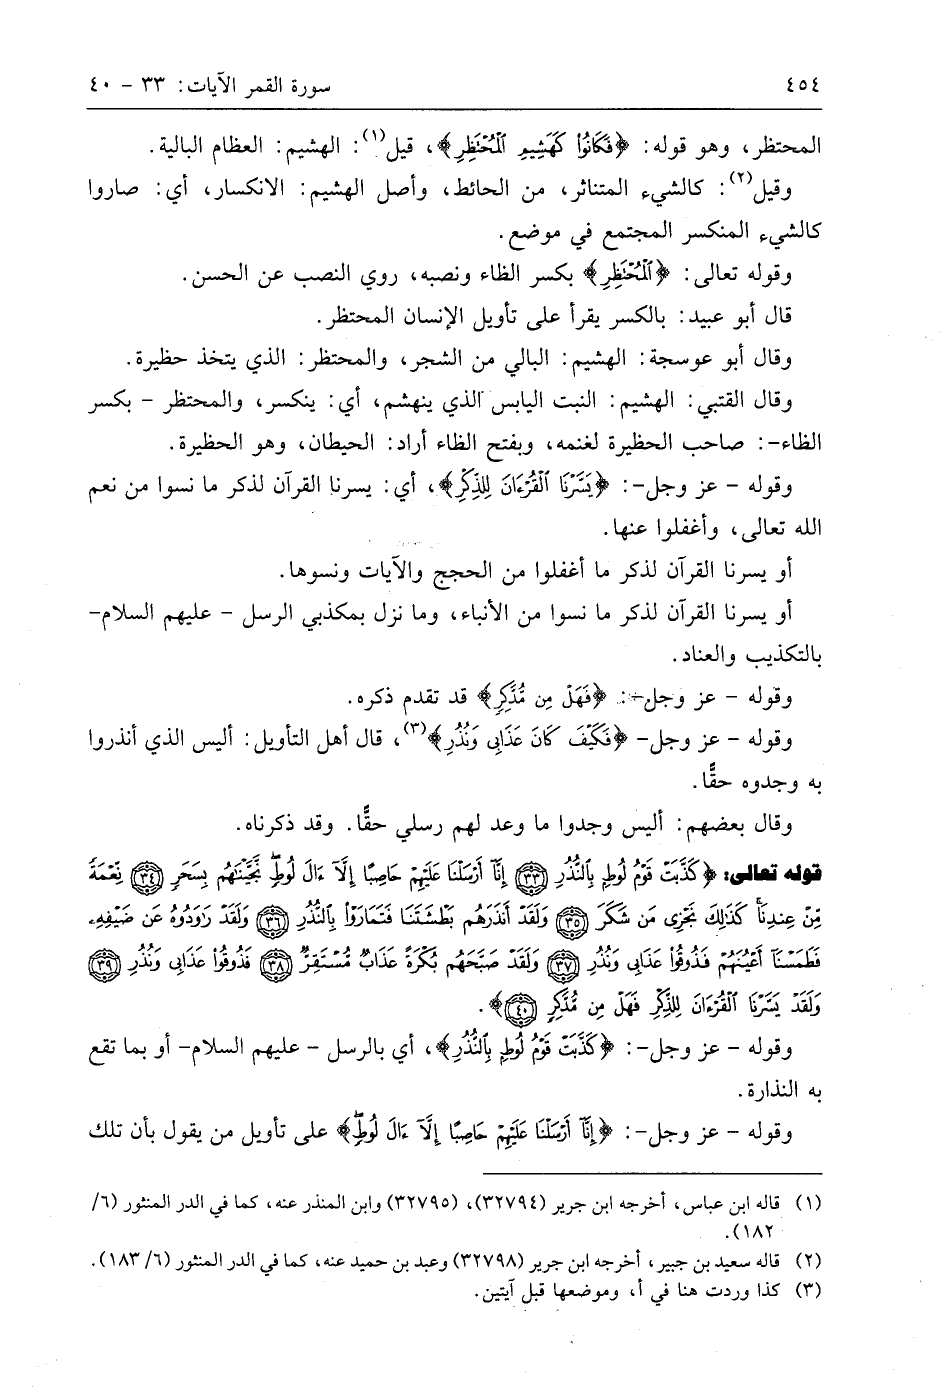 ٤٥٤ سورة القمر الآيات: ٣٣ - ٤٠
المحتظر، وهو قوله: ﴿فَكَانُوا۟ كَهَشِيمِ ٱلْمُحْتَظِرِ﴾، قيل(١): الهشيم: العظام البالية.
وقيل(٢): كالشيء المتناثر، من الحائط، وأصل الهشيم: الانكسار، أي: صاروا
كالشيء المنكسر المجتمع في موضع.
وقوله تعالى: ﴿ٱلْمُحْتَظِرِ﴾ بكسر الظاء ونصبه، روي النصب عن الحسن.
قال أبو عبيد: بالكسر يقرأ على تأويل الإنسان المحتظر.
وقال أبو عوسجة: الهشيم: البالي من الشجر، والمحتظر: الذي يتخذ حظيرة.
وقال القتبي: الهشيم: النبت اليابس الذي ينهشم، أي: ينكسر، والمحتظر - بكسر
الظاء-: صاحب الحظيرة لغنمه، وبفتح الظاء أراد: الحيطان، وهو الحظيرة.
وقوله - عز وجل-: ﴿يَسَّرْنَا ٱلْقُرْءَانَ لِلذِّكْرِ﴾، أي: يسرنا القرآن لذكر ما نسوا من نعم
الله تعالى، وأغفلوا عنها.
أو يسرنا القرآن لذكر ما أغفلوا من الحجج والآيات ونسوها.
أو يسرنا القرآن لذكر ما نسوا من الأنباء، وما نزل بمكذبي الرسل - عليهم السلام-
بالتكذيب والعناد.
وقوله - عز وجل-: ﴿فَهَلْ مِن مُّدَّكِرٍ﴾ قد تقدم ذكره.
وقوله - عز وجل- ﴿فَكَيْفَ كَانَ عَذَابِى وَنُذُرِ﴾(٣)، قال أهل التأويل: أليس الذي أنذروا
به وجدوه حقًّا.
وقال بعضهم: أليس وجدوا ما وعد لهم رسلي حقًّا. وقد ذكرناه.
قوله تعالى: ﴿كَذَّبَتْ قَوْمُ لُوطٍۭ بِٱلنُّذُرِ ٣٣ إِنَّآ أَرْسَلْنَا عَلَيْهِمْ حَاصِبًا إِلَّآ ءَالَ لُوطٍۖ نَّجَّيْنَٰهُم بِسَحَرٍ ٣٤ نِّعْمَةً
مِّنْ عِندِنَاۚ كَذَٰلِكَ نَجْزِى مَن شَكَرَ ٣٥ وَلَقَدْ أَنذَرَهُم بَطْشَتَنَا فَتَمَارَوْا۟ بِٱلنُّذُرِ ٣٦ وَلَقَدْ رَٰوَدُوهُ عَن ضَيْفِهِۦ
فَطَمَسْنَآ أَعْيُنَهُمْ فَذُوقُوا۟ عَذَابِى وَنُذُرِ ٣٧ وَلَقَدْ صَبَّحَهُم بُكْرَةً عَذَابٌ مُّسْتَقِرٌّ ٣٨ فَذُوقُوا۟ عَذَابِى وَنُذُرِ ٣٩
وَلَقَدْ يَسَّرْنَا ٱلْقُرْءَانَ لِلذِّكْرِ فَهَلْ مِن مُّدَّكِرٍ ٤٠﴾.
وقوله - عز وجل-: ﴿كَذَّبَتْ قَوْمُ لُوطٍۭ بِٱلنُّذُرِ﴾، أي بالرسل - عليهم السلام- أو بما تقع
به النذارة.
وقوله - عز وجل-: ﴿إِنَّآ أَرْسَلْنَا عَلَيْهِمْ حَاصِبًا إِلَّآ ءَالَ لُوطٍۖ﴾ على تأويل من يقول بأن تلك
(١) قاله ابن عباس، أخرجه ابن جرير (٣٢٧٩٤)، (٣٢٧٩٥) وابن المنذر عنه، كما في الدر المنثور (٦/
١٨٢).
(٢) قاله سعيد بن جبير، أخرجه ابن جرير (٣٢٧٩٨) وعبد بن حميد عنه، كما في الدر المنثور (٦/ ١٨٣).
(٣) كذا وردت هنا في أ، وموضعها قبل آيتين.